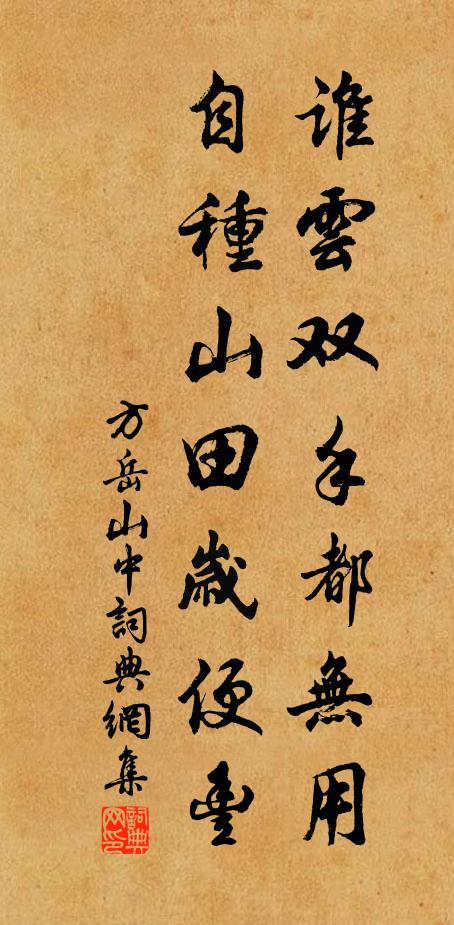 誰雲双手都無用
自種山田歲便豐
方岳山中詞典網集
詞典网印